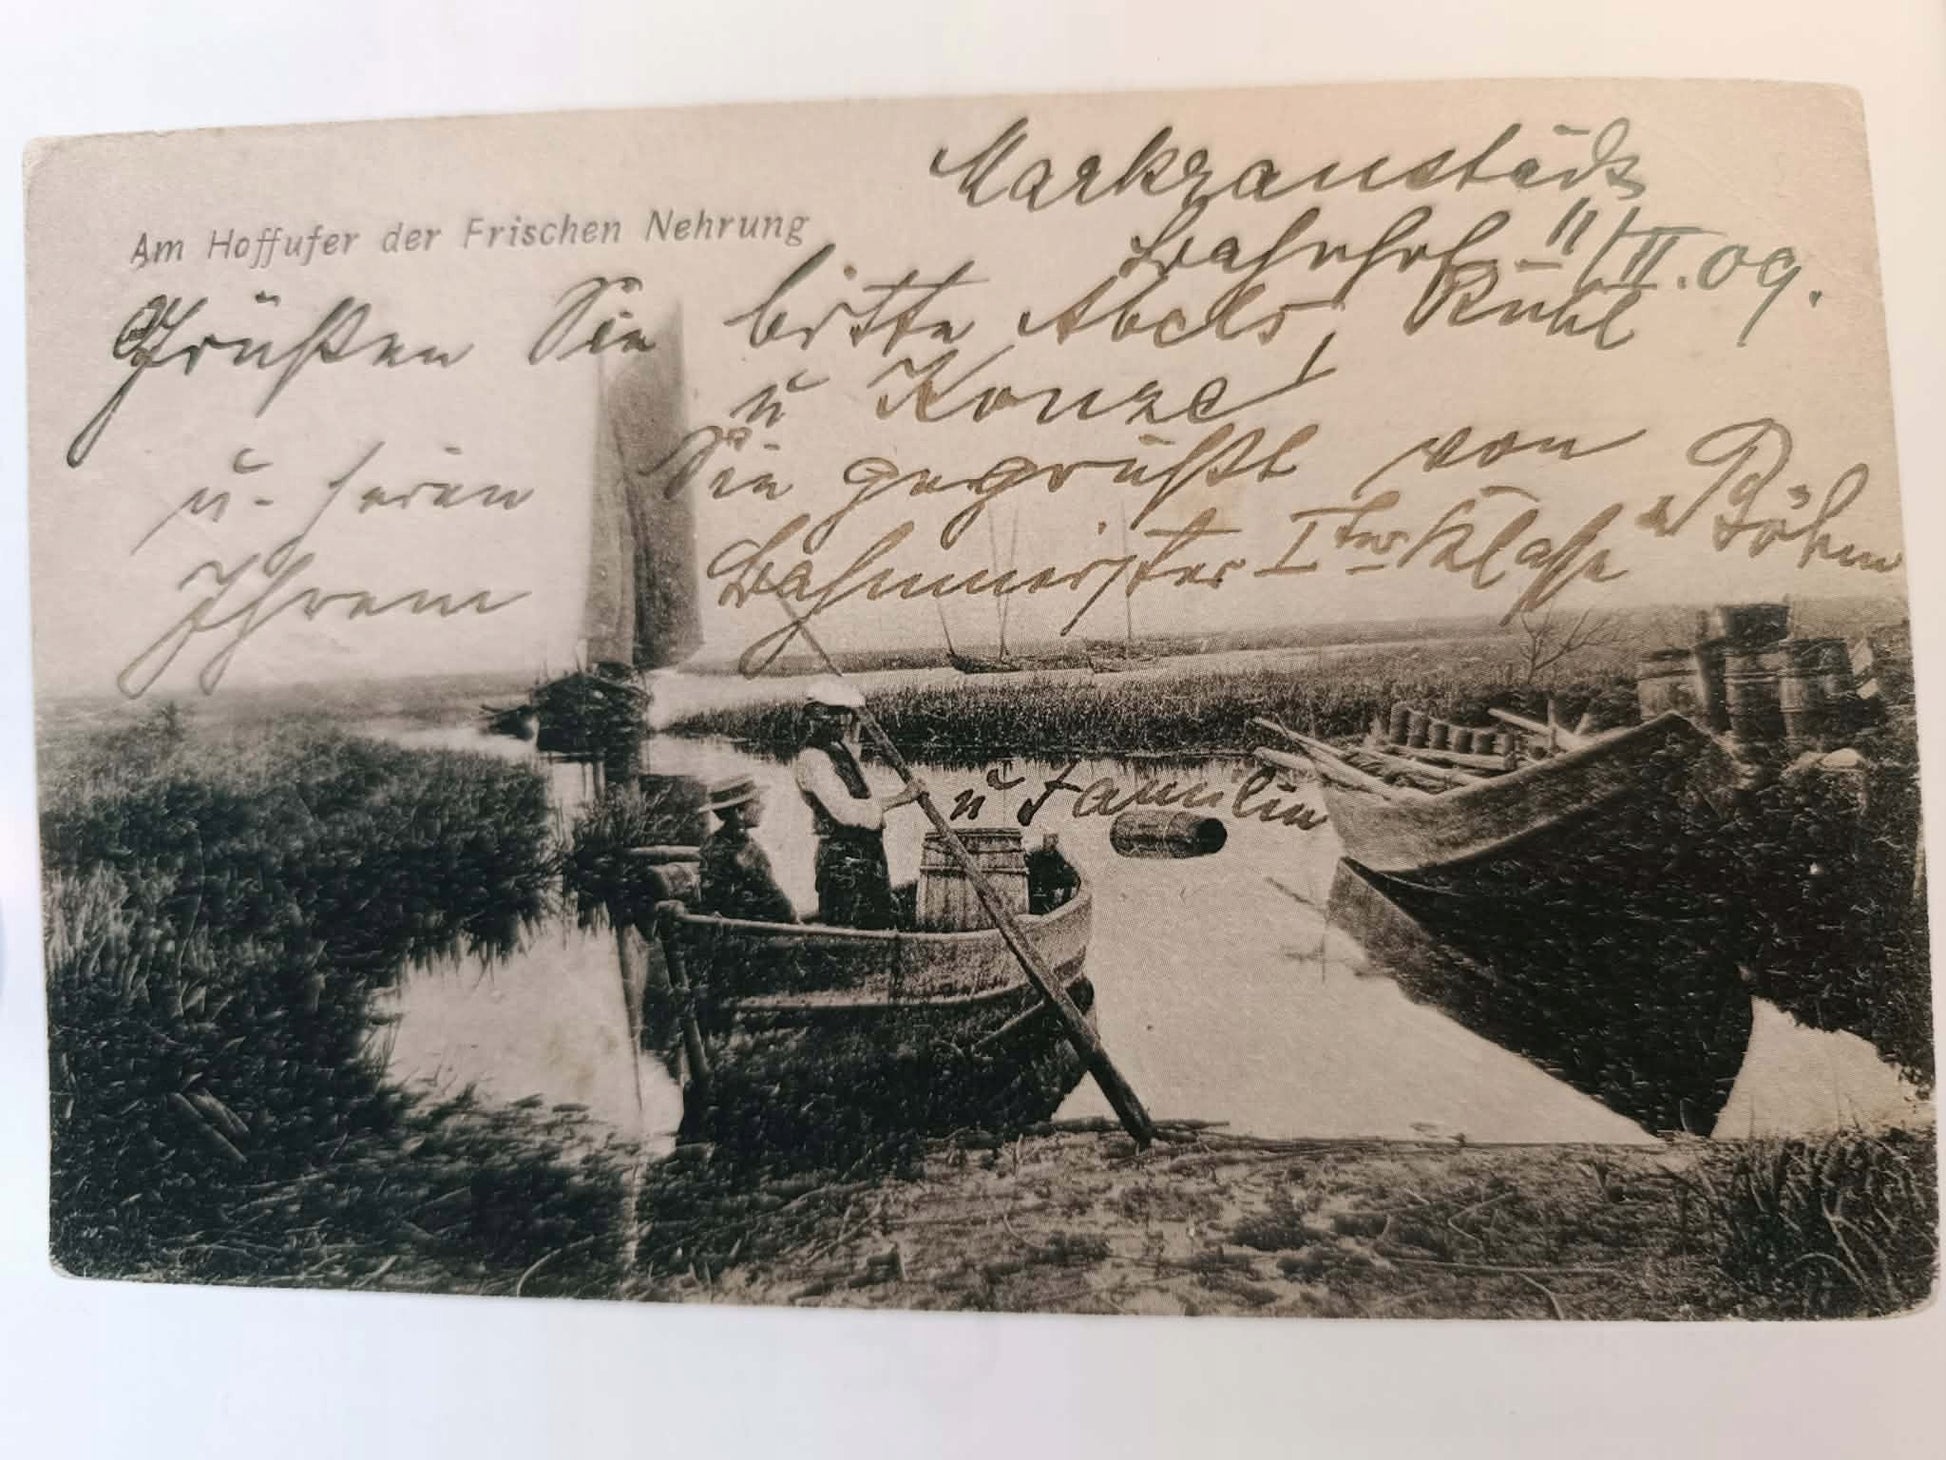 Am Hoffufer der Frischen Nehrung
Markranstädt
Bahnhof 11/II. 09.
Grüßen Sie bitte Abels, Kühl
u Konze!
u. seien Sie gegrüßt von
Ihrem Bahnmeister Iter Klasse Böhm
u Familie